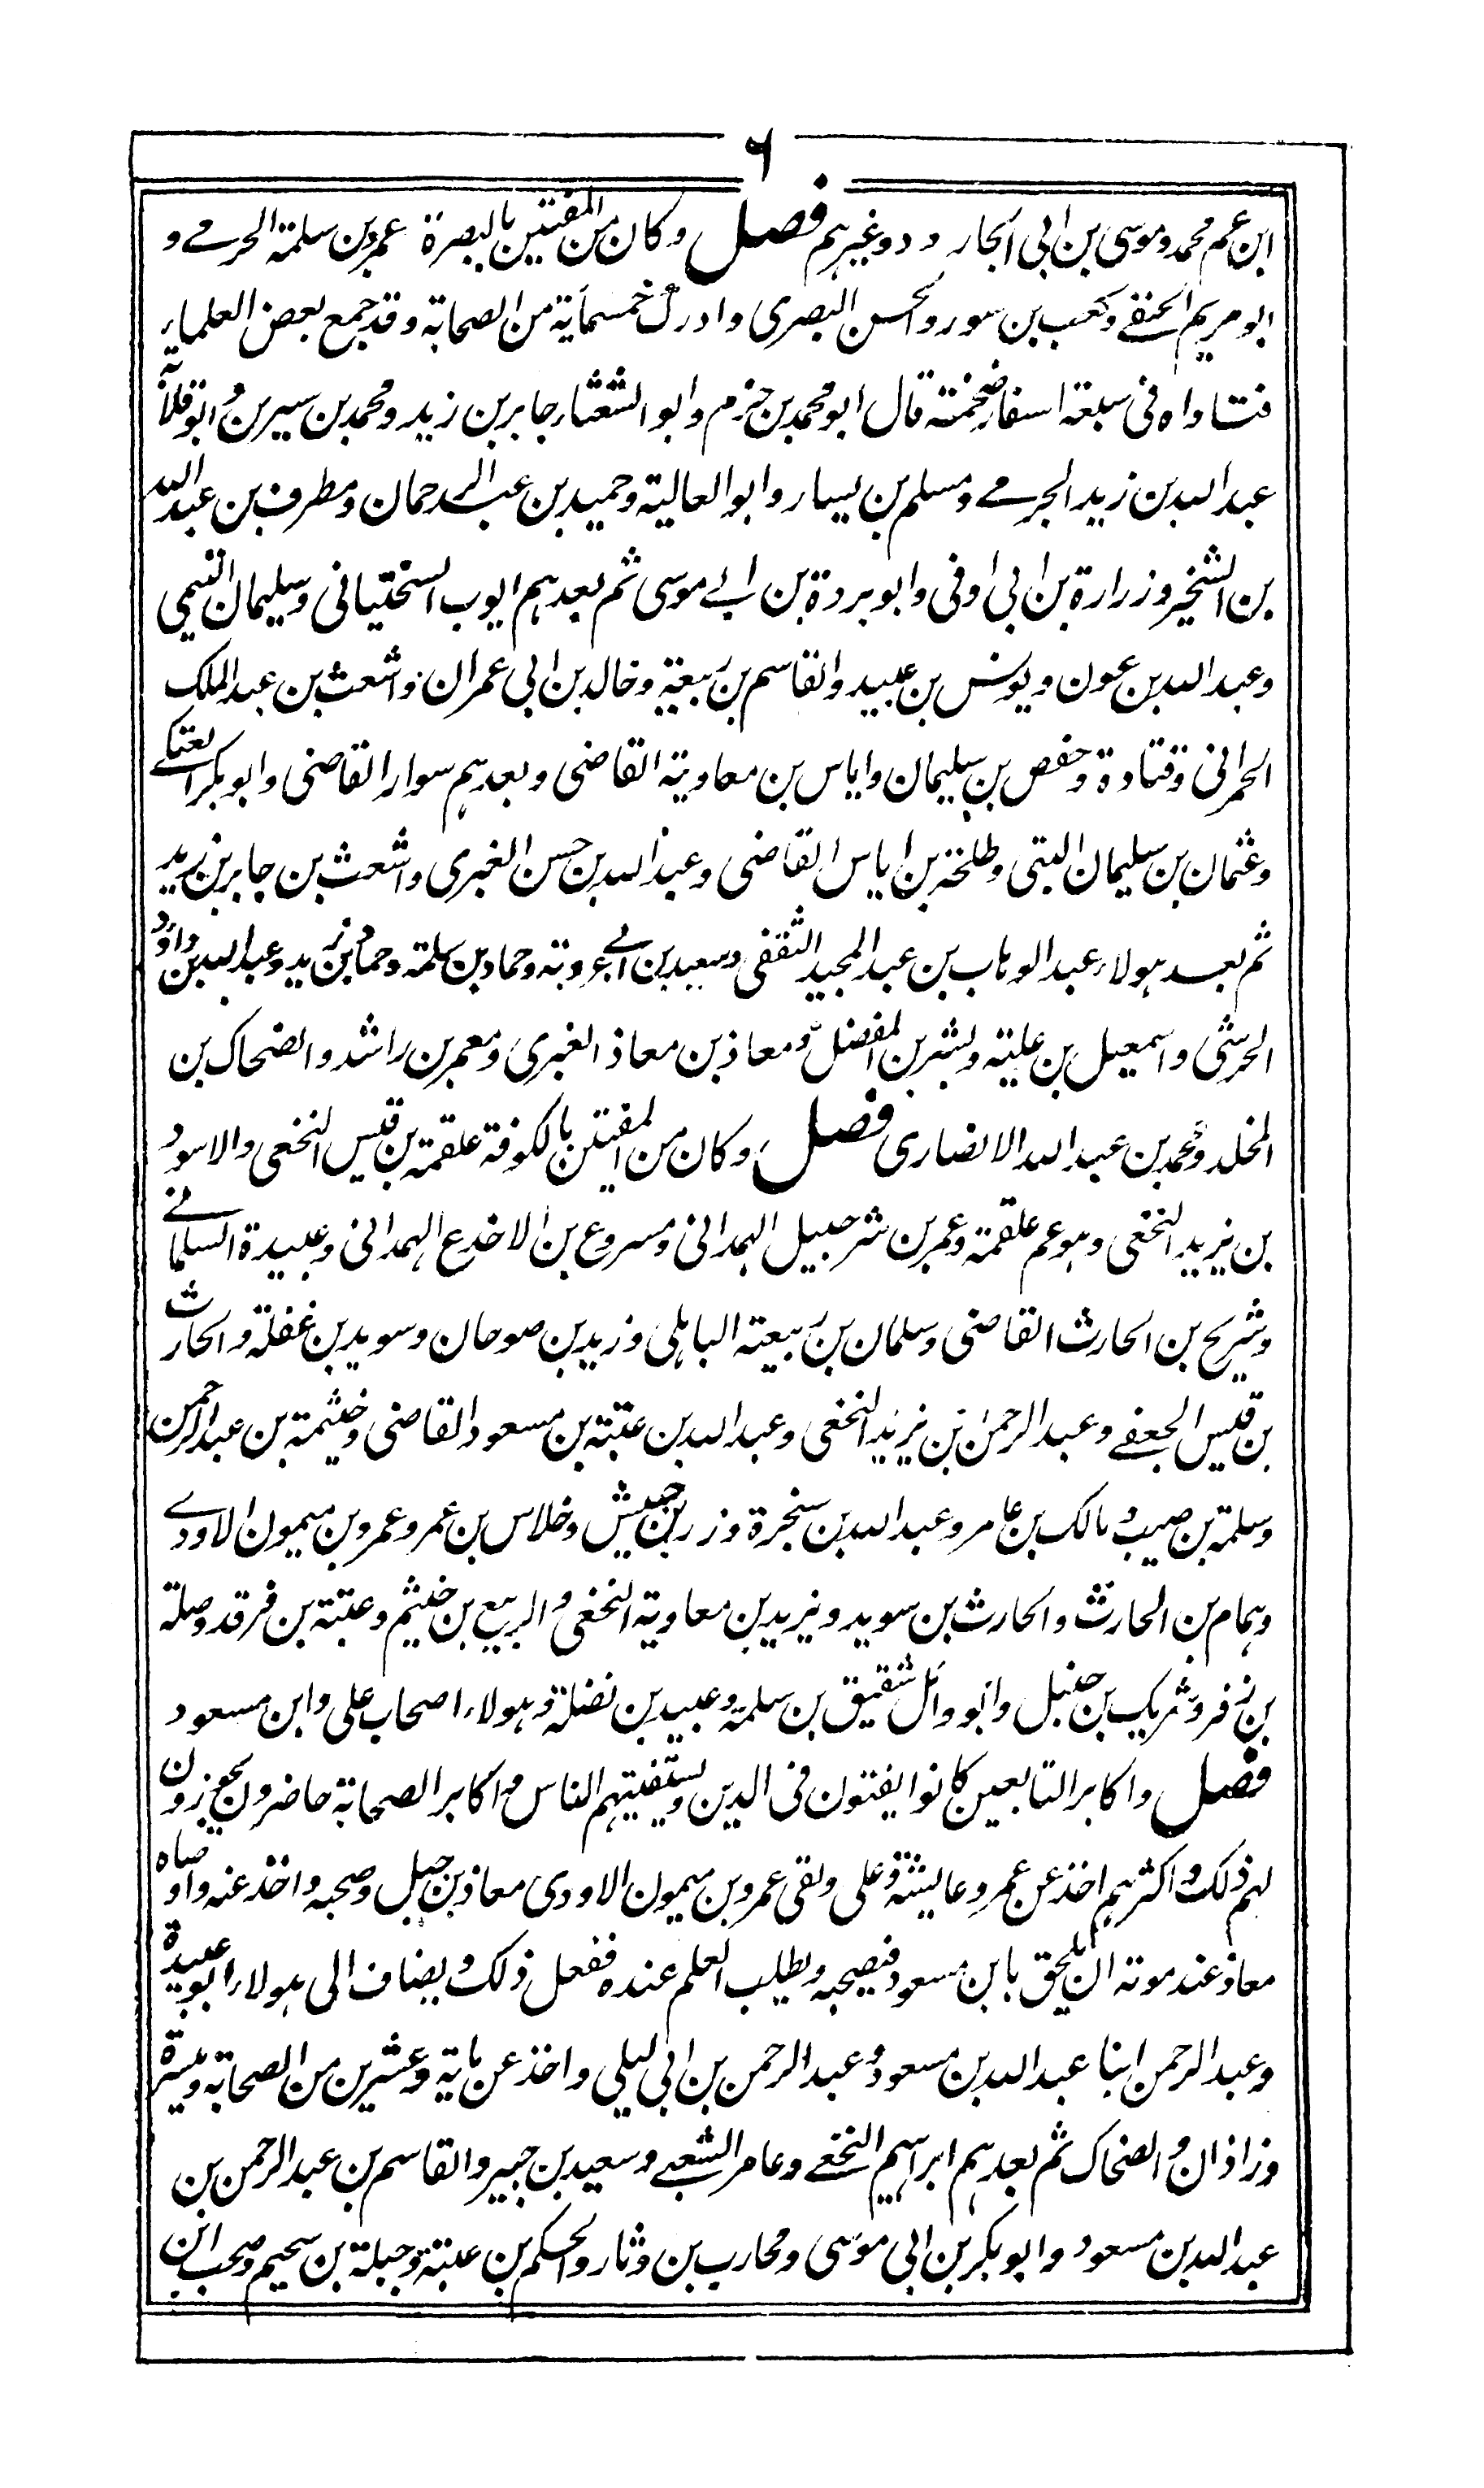 ٦
ابن عم محمد وموسى بن ابى الجارود وغيرهم فصل وكان من المفتين بالبصرة عمرو بن سلمة الجرمے و
ابو مريم الحنفے وكعب بن سور والحسن البصرى وادرك خمسمأية من الصحابة وقد جمع بعض العلماء
فتاواه فى سبعة اسفار ضخمة قال ابو محمد بن حزم وابو الشعثاء جابر بن زيد ومحمد بن سيرين وابو قلابة
عبد الله بن زيد الجرمے ومسلم بن يسار وابو العالية وحميد بن عبد الرحمان ومطرف بن عبد الله
بن الشخير وزرارة بن ابى اوفى وابو بردة بن ابے موسى ثم بعدهم ايوب السختيانى وسليمان التيمى
وعبد الله بن عون ويونس بن عبيد والقاسم بن ربيعة وخالد بن ابى عمران واشعث بن عبد الملك
الحمرانى وقتادة وحفص بن سليمان واياس بن معاوية القاضى وبعدهم سوار القاضى وابو بكر العتكے
وعثمان بن سليمان البتى وطلحة بن اياس القاضى وعبد الله بن حسن الغبرى واشعث بن جابر بن زيد
ثم بعد هولاء عبد الوهاب بن عبد المجيد الثقفى وسعيد بن ابے عروبة وحماد بن سلمة وحماد بن زيد وعبد الله بن داؤد
الحرشى واسمعيل بن علية وبشر بن المفضل ومعاذ بن معاذ الغبرى ومعمر بن راشد والضحاك بن
المخلد ومحمد بن عبد الله الانصارى فصل وكان من المفتين بالكوفة علقمة بن قيس النخعى والاسود
بن يزيد النخعى وهو عم علقمة وعمر بن شرحبيل الهمدانى ومسروع بن الاخدع الهمدانى وعبيدة السلمانے
وشريح بن الحارث القاضى وسلمان بن ربيعة الباهلى وزيد بن صوحان وسويد بن غفلة والحارث
بن قيس الجعفے وعبد الرحمن بن يزيد النخعى وعبد الله بن عتبة بن مسعود القاضى وخيثمة بن عبد الرحمن
وسلمة بن صهيب ومالك بن عامر وعبد الله بن سنجرة وزر بن حبيش وخلاس بن عمرو وعمرو بن ميمون الاودے
وهمام بن الحارث والحارث بن سويد ويزيد بن معاوية النخعى والربيع بن خثيم وعتبة بن فرقد وصلة
بن زفر وشريك بن حنبل وابو وائل شقيق بن سلمة وعبيد بن نضلة وهولاء اصحاب على وابن مسعود
فصل واكابر التابعين كانوا يفتون فى الدين ويستفتيهم الناس واكابر الصحابة حاضرون يجوزون
لهم ذلك واكثرهم اخذ عن عمر وعايشة وعلى ولقى عمرو بن ميمون الاودى معاذ بن جبل وصحبه واخذ عنه واوصاه
معاذ عند موته ان يلحق بابن مسعود فيصحبه ويطلب العلم عنده ففعل ذلك ويضاف الى هولاء ابو عبيدة
وعبد الرحمن ابنا عبد الله بن مسعود وعبد الرحمن بن ابى ليلى واخذ عن ماية وعشرين من الصحابة وميسرة
وزاذان والضحاك ثم بعدهم ابراهيم النخعے وعامر الشعبے وسعيد بن جبير والقاسم بن عبد الرحمن بن
عبد الله بن مسعود وابو بكر بن ابى موسى ومحارب بن دثار والحكم بن عتبة وجبلة بن سحيم وصحب ابن